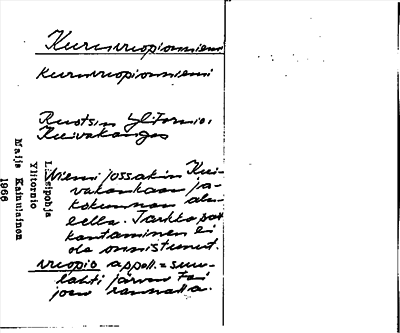 Kuruvuopionniemi
Kuruvuopionniemi
Ruotsin Ylitornio,
Kuivakangas
Niemi jossakin Kui-
vakankaan ja-
kokunnan alu-
eella. Tarkka pai-
kantaminen ei
ole onnistunut.
vuopio appell. = suu-
lahti järven tai
joen rannalla.
Ylitornio
Maija Kainulainen
1966